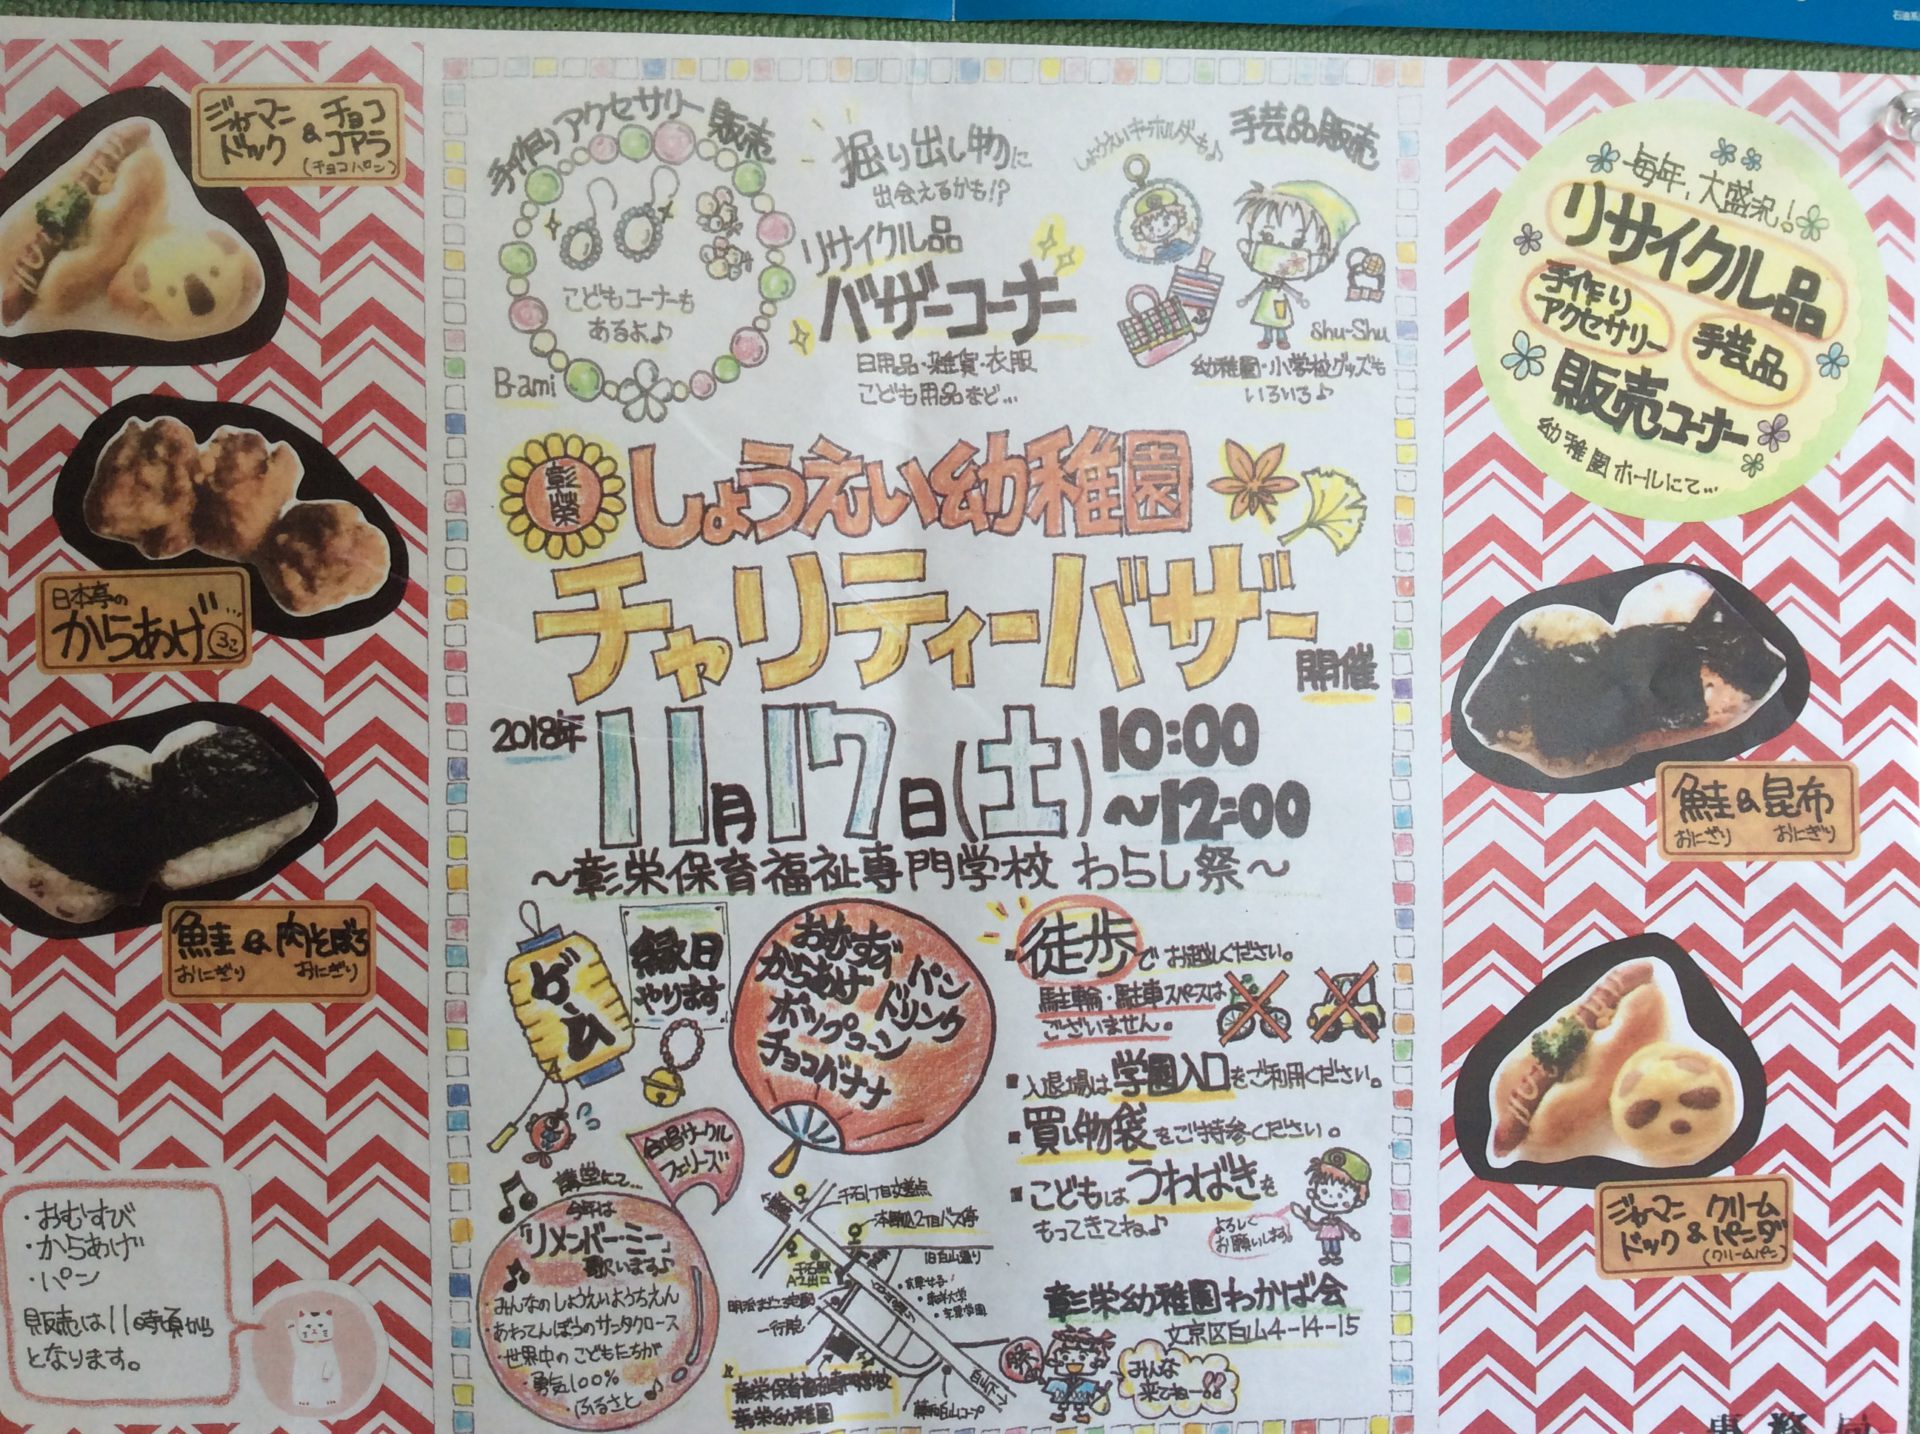 ジャーマンドック & チョココアラ
(チョコパン)
日本亭の
からあげ 3コ
鮭 & 肉そぼろ
おにぎり おにぎり
・おむすび
・からあげ
・パン
販売は11時頃から
となります。
手作りアクセサリー販売
こどもコーナーも
あるよ♪
B-ami
掘り出し物に
出会えるかも!?
リサイクル品
バザーコーナー
日用品・雑貨・衣服
こども用品など…
しょうえいキーホルダーも♪
手芸品販売
shu-shu
幼稚園・小学校グッズも
いろいろ♪
彰榮
しょうえい幼稚園
チャリティーバザー
開催
2018年
11月17日(土)
10:00
~12:00
~彰栄保育福祉専門学校 わらし祭~
ゲーム
縁日
やります
おむすび
からあげ
ポップコーン
チョコバナナ
パン
ドリンク
徒歩でお越しください。
駐輪・駐車スペースは
ございません。
入退場は学園入口をご利用ください。
買い物袋をご持参ください。
こどもはうわばきを
もってきてね♪
よろしく
お願いします!
合唱サークル
フェリーズ
講堂にて…
今年は
「リメンバー・ミー」
歌います♪
・みんなのしょうえいようちえん
・あわてんぼうのサンタクロース
・世界中のこどもたちが
・勇気100%
・ふるさと♪
千石1丁目交差点
本駒込2丁目バス停
旧白山通り
千石駅
A1出口
一行院
彰栄保育福祉専門学校
彰栄幼稚園
彰栄幼稚園わかば会
文京区白山4-14-15
祭
みんな
来てねー!!
毎年、大盛況!
リサイクル品
手作り
アクセサリー
手芸品
販売コーナー
幼稚園ホールにて…
鮭 & 昆布
おにぎり おにぎり
ジャーマンドック & クリームパンダ
(クリームパン)